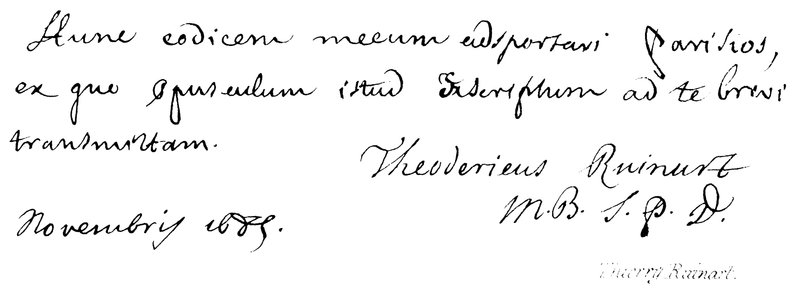 Hunc codicem mecum adsportavi Parisios,
ex quo Opusculum istud Exscriptum ad te brevi
transmittam.
Theodericus Ruinart
M.B. S. P. D.
Novembris 1685.
Thierry Ruinart.